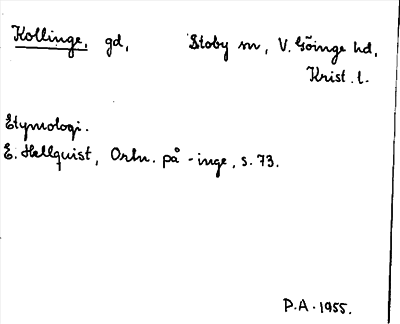 Kollinge, gd, Stoby sn, V. Göinge hd,
Krist. l.
Etymologi.
E. Hellquist, Ortn. på -inge, s. 73.
P.A. 1955.